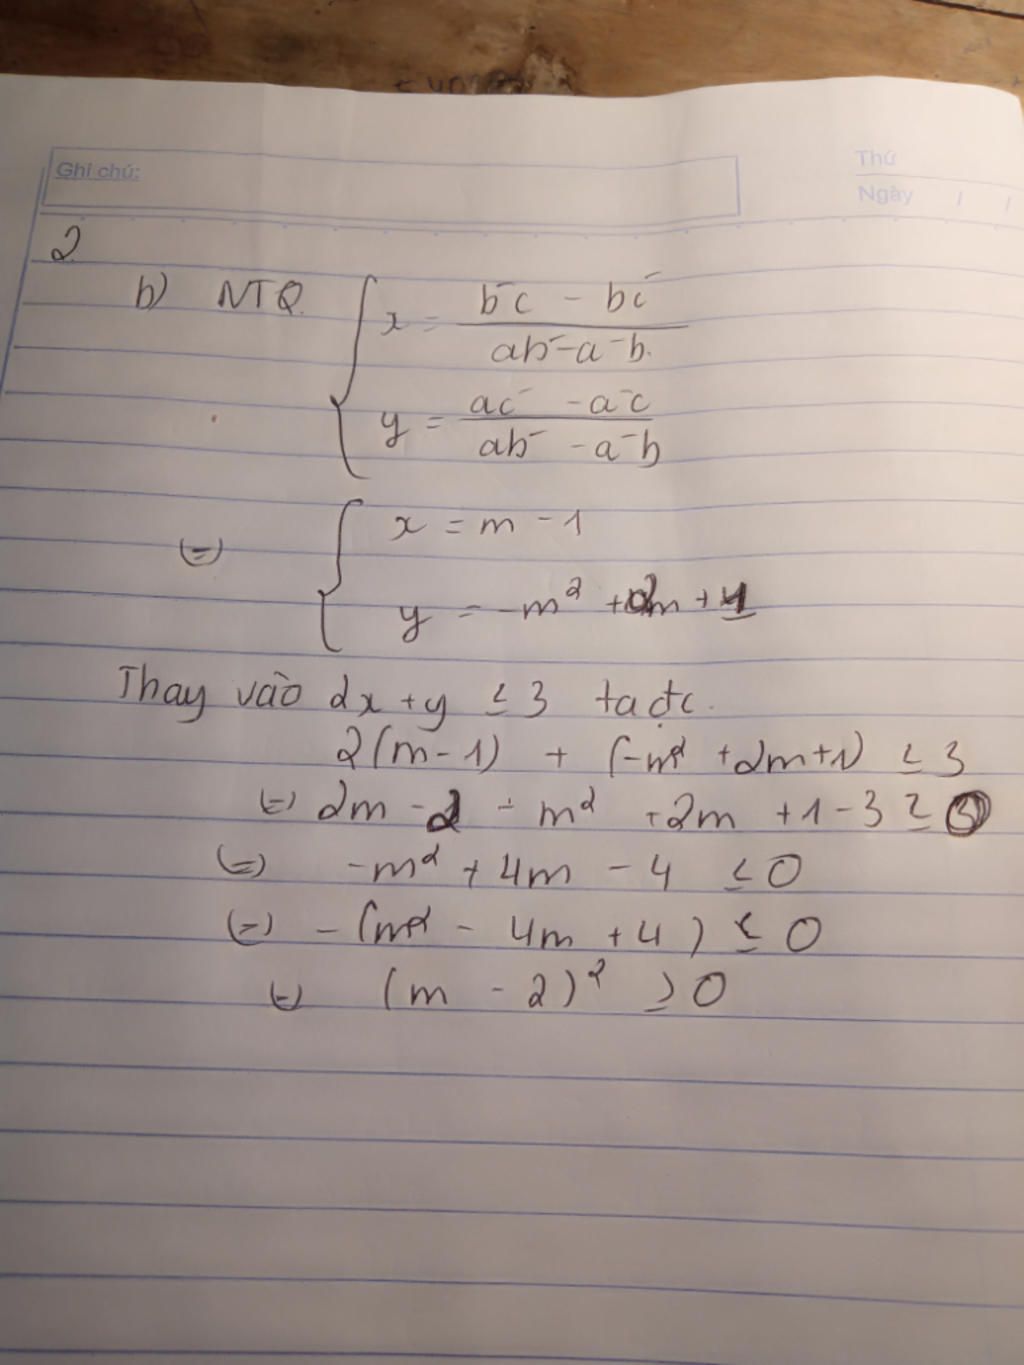 Ghi chú:
Thứ
Ngày / /
2
b) NTQ
x = (b⁻c - bc⁻) / (ab⁻ - a⁻b)
y = (ac⁻ - a⁻c) / (ab⁻ - a⁻b)
(=) x = m - 1
y = -m² + 2m + 1
Thay vào 2x + y ≤ 3 ta đc.
2(m - 1) + (-m² + 2m + 1) ≤ 3
(=) 2m - 2 - m² + 2m + 1 - 3 ≤
(=) -m² + 4m - 4 ≤ 0
(=) -(m² - 4m + 4) ≤ 0
(=) (m - 2)² ≥ 0